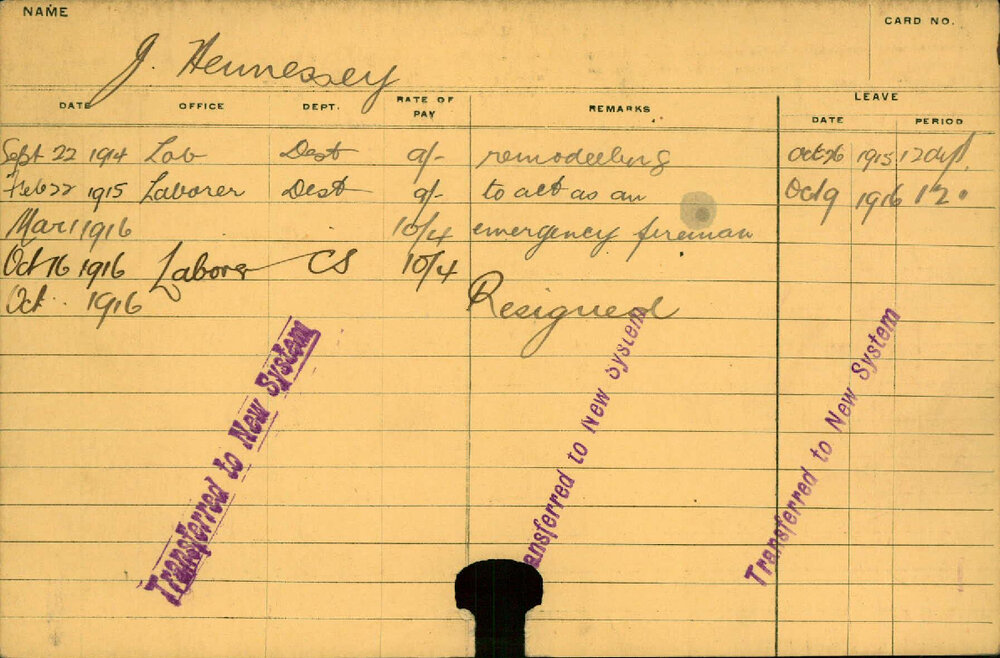 NAME
CARD NO.
J. Hennessey
DATE OFFICE DEPT. RATE OF PAY REMARKS LEAVE
DATE PERIOD
Sept 22 1914 Lab Dest 9/- remodelling Oct 26 1915 12 dys.
Feb 22 1915 Laborer Dest 9/- to act as an Oct 9 1916 12 "
Mar 1 1916 10/4 emergency fireman
Oct 16 1916 Laborer CS 10/4
Oct .. 1916 Resigned
Transferred to New System
ansferred to New System
Transferred to New System